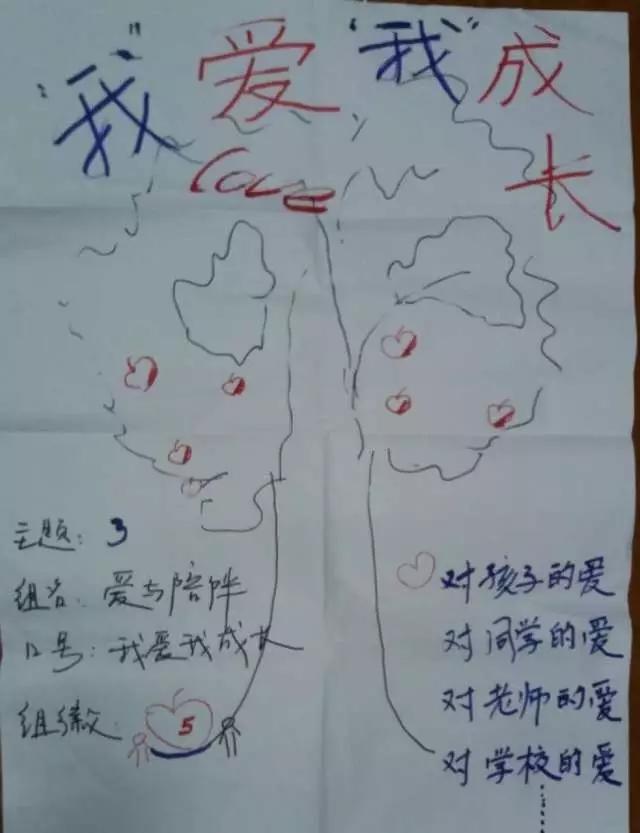 "我"爱"我"成长
Love
主题：3
组名：爱与陪伴
口号：我爱我成长
组徽：
5
对孩子的爱
对同学的爱
对老师的爱
对学校的爱
……